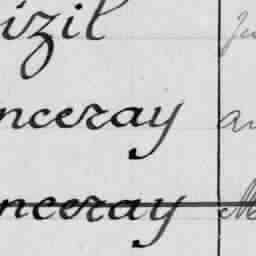 izil
nceray
nceray